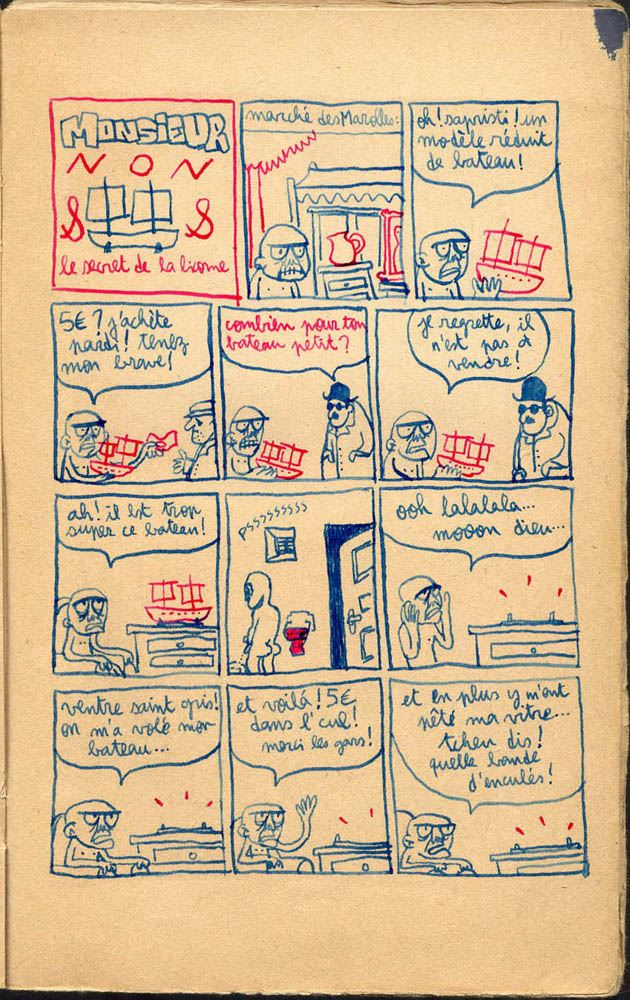 MONSIEUR
NON
S S
le secret de la licorne
marché des Marolles:
oh! sapristi! un
modèle réduit
de bateau!
5€? j'achète
pardi! tenez
mon brave!
combien pour ton
bateau petit?
je regrette, il
n'est pas à
vendre!
ah! il est trop
super ce bateau!
psssssssss
ooh lalalala...
mooon dieu...
ventre saint gris!
on m'a volé mon
bateau...
et voilà! 5€
dans l'cul!
merci les gars!
et en plus y m'ont
pété ma vitre...
tcheu dis!
quelle bande
d'enculés!